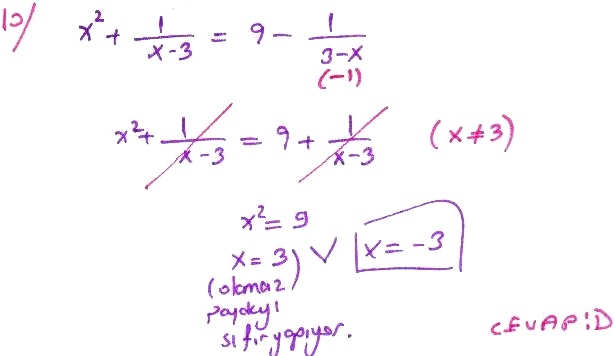 10/ x² + 1/(x-3) = 9 - 1/(3-x)
(-1)
x² + 1/(x-3) = 9 + 1/(x-3) (x≠3)
x² = 9
x = 3) ∨ x = -3
(olamaz
paydayı
sıfır yapıyor.
CEVAP:D